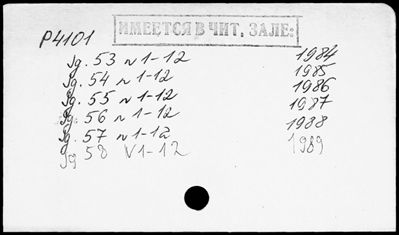 P4101
ИМЕЕТСЯ В ЧИТ. ЗАЛЕ:
Jg. 53 N 1-12 1984
Jg. 54 N 1-12 1985
Jg. 55 N 1-12 1986
Jg. 56 N 1-12 1987
Jg. 57 N 1-12 1988
Jg 58 N 1-12 1989